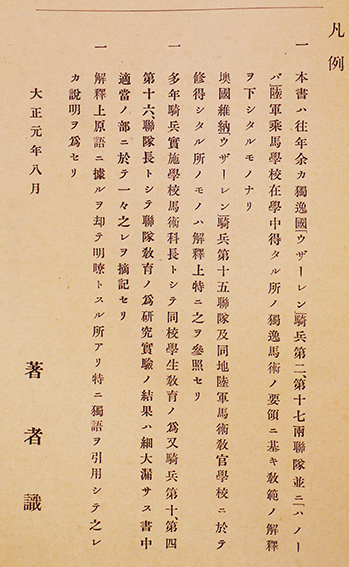 凡例
一 本書ハ往年余カ獨逸國「ウザーレン」騎兵第二、第十七兩聯隊並ニ「ハノー
バ」陸軍乘馬學校在學中得タル所ノ獨逸馬術ノ要領ニ基キ敎範ノ解釋
ヲ下シタルモノナリ
墺國維納「ウザーレン」騎兵第十五聯隊及同地陸軍馬術敎官學校ニ於テ
修得シタル所ノモノハ解釋上特ニ之ヲ參照セリ
一 多年騎兵實施學校馬術科長トシテ同校學生敎育ノ爲又騎兵第十、第四
第十六、聯隊長トシテ聯隊敎育ノ爲硏究實驗ノ結果ハ細大漏サス書中
適當ノ部ニ於テ一々之レヲ摘記セリ
一 解釋上原語ニ據ルヲ却テ明瞭トスル所アリ特ニ獨語ヲ引用シテ之レ
カ說明ヲ爲セリ
大正元年八月
著者識